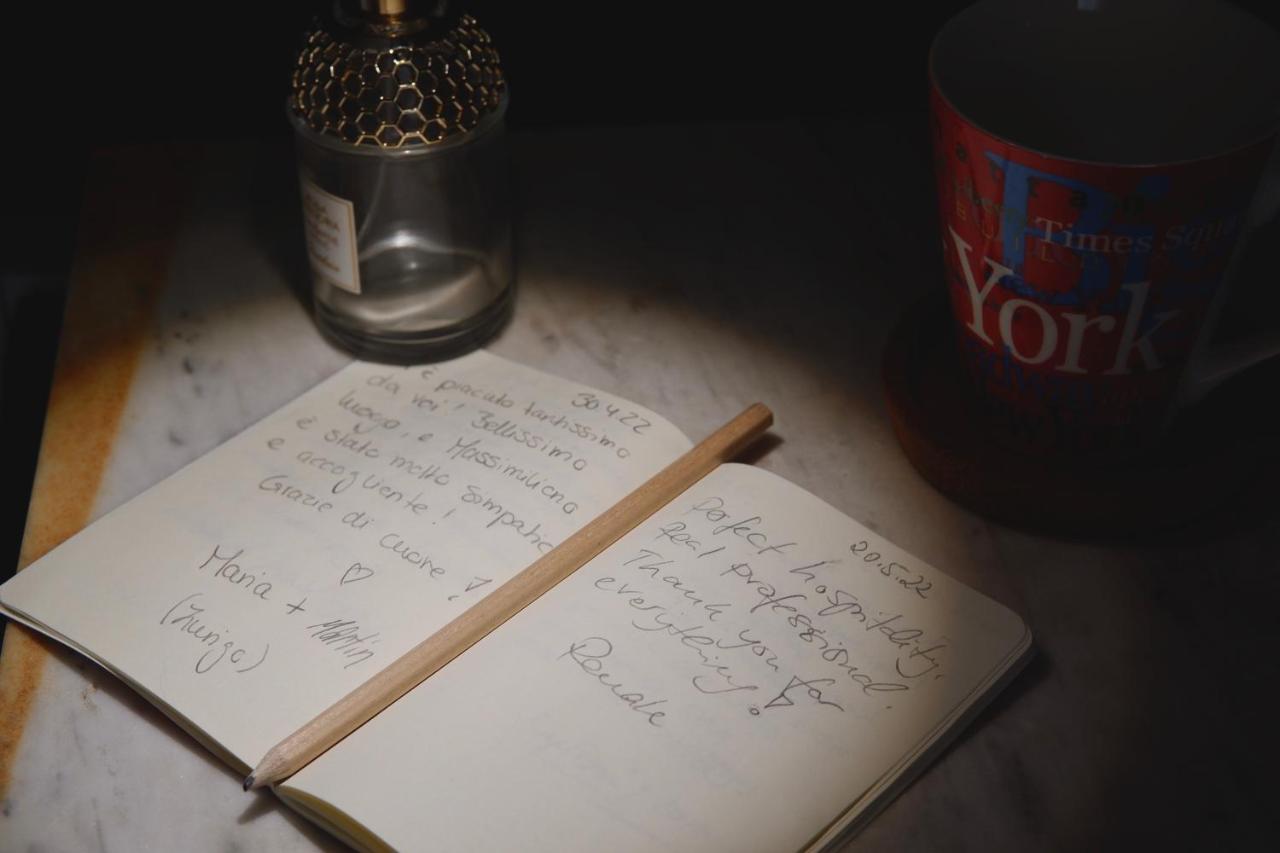 30 4 22
è piaciuto tantissimo
da voi! Bellissimo
luogo, e Massimiliano
è stato molto simpatic
e accogliente!
Grazie di cuore!
♡
Maria + Martin
(Zurigo)
20.5.22
Perfect hospitality.
Real professional.
Thank you for
everything!
Renate
Times Squ
York